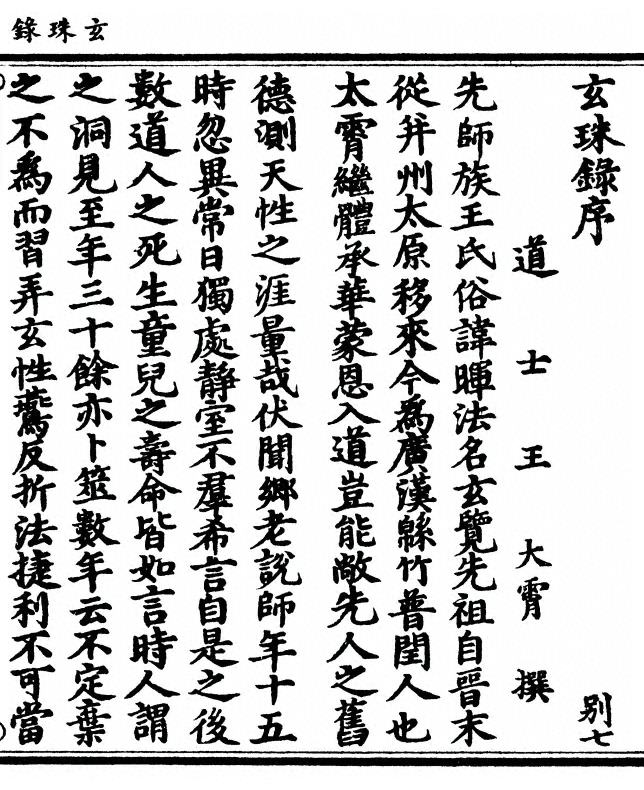 玄珠錄
玄珠錄序
別七
道士王大霄撰
先師族王氏俗諱暉法名玄覽先祖自晉末
從并州太原移來今為廣漢緜竹普閏人也
太霄繼體承華蒙恩入道豈能敵先人之舊
德測天性之涯量哉伏聞鄉老說師年十五
時忽異常日獨處靜室不羣希言自是之後
數道人之死生童兒之壽命皆如言時人謂
之洞見至年三十餘亦卜筮數年云不定棄
之不為而習弄玄性鷰反折法捷利不可當